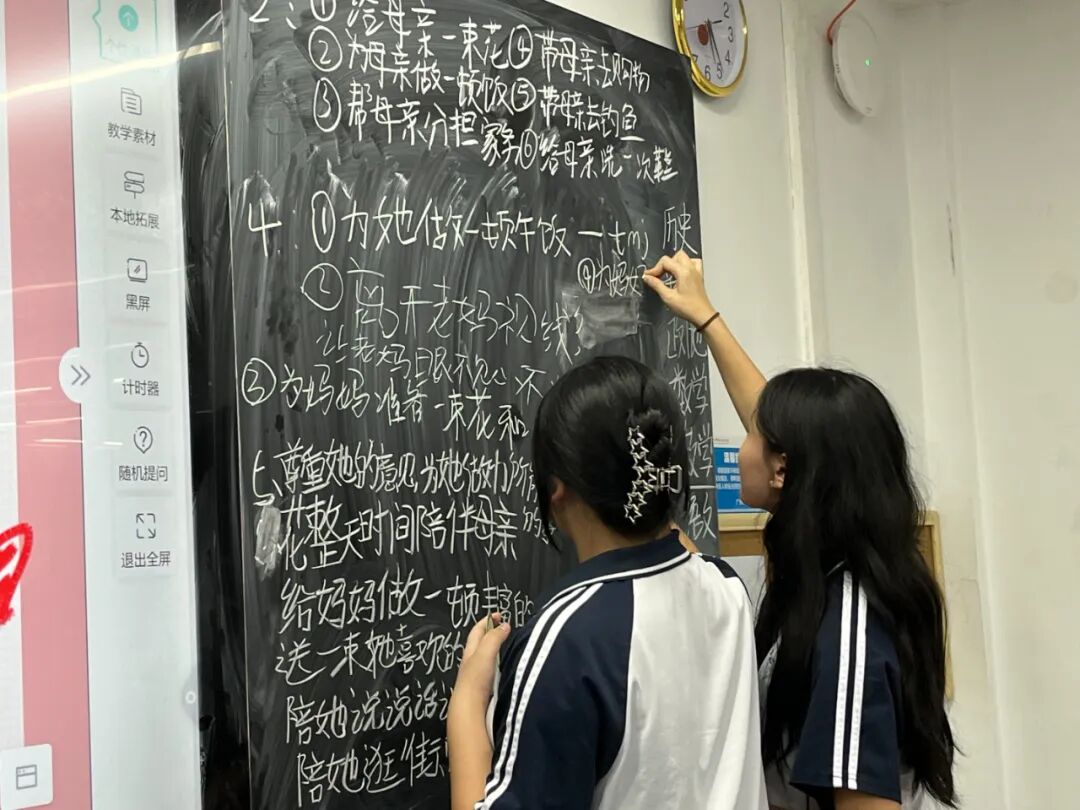 教学素材
本地拓展
黑屏
计时器
随机提问
退出全屏
2:① 给母亲一束花 ④ 带母亲去购物
② 为母亲做一顿饭 ⑤ 带母亲去钓鱼
③ 帮母亲分担家务 ⑥ 给母亲洗一次
4. ① 为她做一顿午饭
④ 为妈妈
② 离开老妈视线
让老妈眼不见心不
③ 为妈妈准备一束花和
5、尊重她的意见,为她做力所能
花整天时间陪伴母亲
给妈妈做一顿丰富的
送一束她喜欢的
陪她说说话
陪她逛街
历史
政治
数学
2
3
4
5
6
7